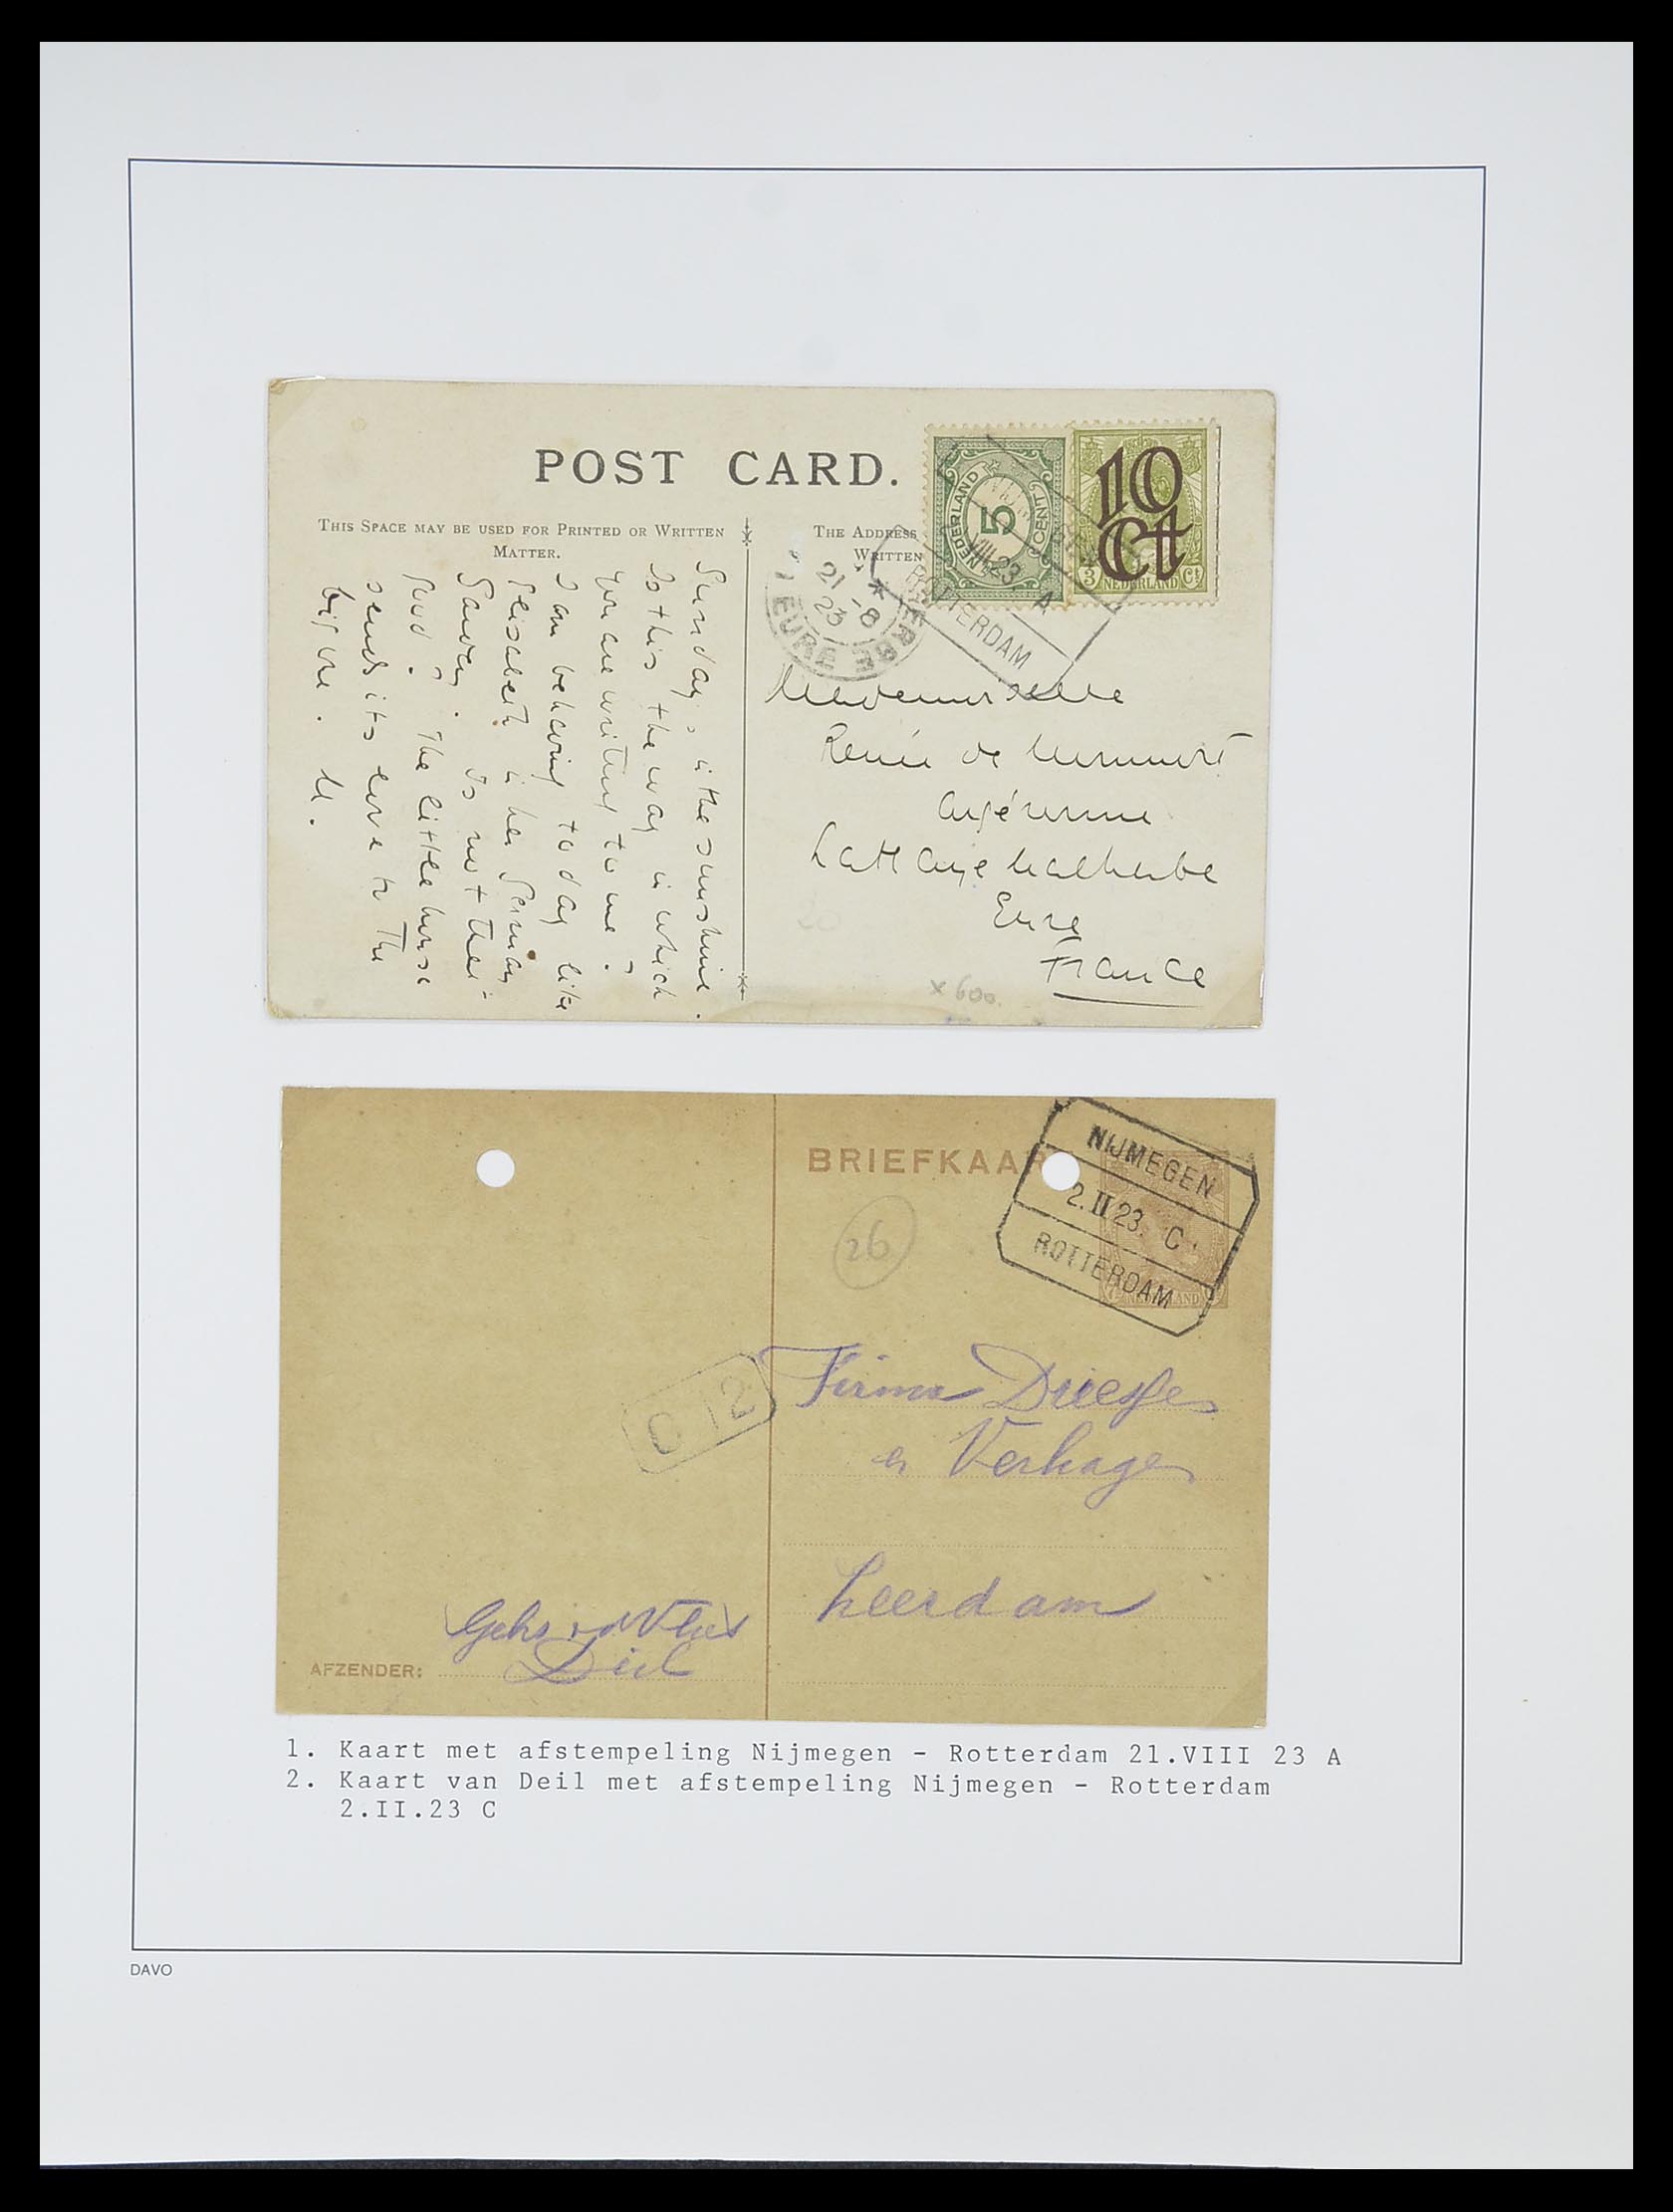 POST CARD.
THIS SPACE MAY BE USED FOR PRINTED OR WRITTEN
MATTER.
THE ADDRESS
WRITTEN
NEDERLAND
5
CENT
10
Ct
3 NEDERLAND Ct
VIII 23 A
ROTTERDAM
21-8
23
EURE
Sunday, in the sunshine.
Is this the way in which
you are writing to me?
I am behaving today like
Elisabeth in her German
Garden. Is not that
good? The little horse
sends its love to the
big one. M.
Mademoiselle
Renée de
La Haye Malherbe
Eure
France
20
x 600.
BRIEFKAAR
NIJMEGEN
2.II 23. C
ROTTERDAM
NEDERLAND
26
C 12
Firma
en Verhagen
Leerdam
AFZENDER:
Deil
1. Kaart met afstempeling Nijmegen - Rotterdam 21.VIII 23 A
2. Kaart van Deil met afstempeling Nijmegen - Rotterdam
2.II.23 C
DAVO